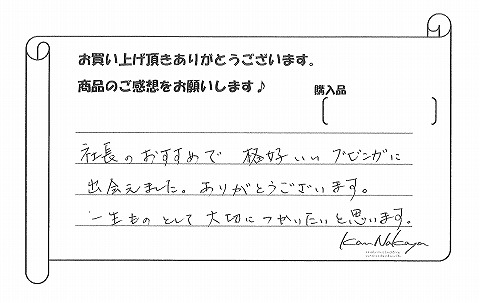 お買い上げ頂きありがとうございます。
商品のご感想をお願いします♪
購入品
社長のおすすめで 格好いい ブビンガに
出会えました。ありがとうございます。
一生ものとして大切につかいたいと思います。
KanNakaya